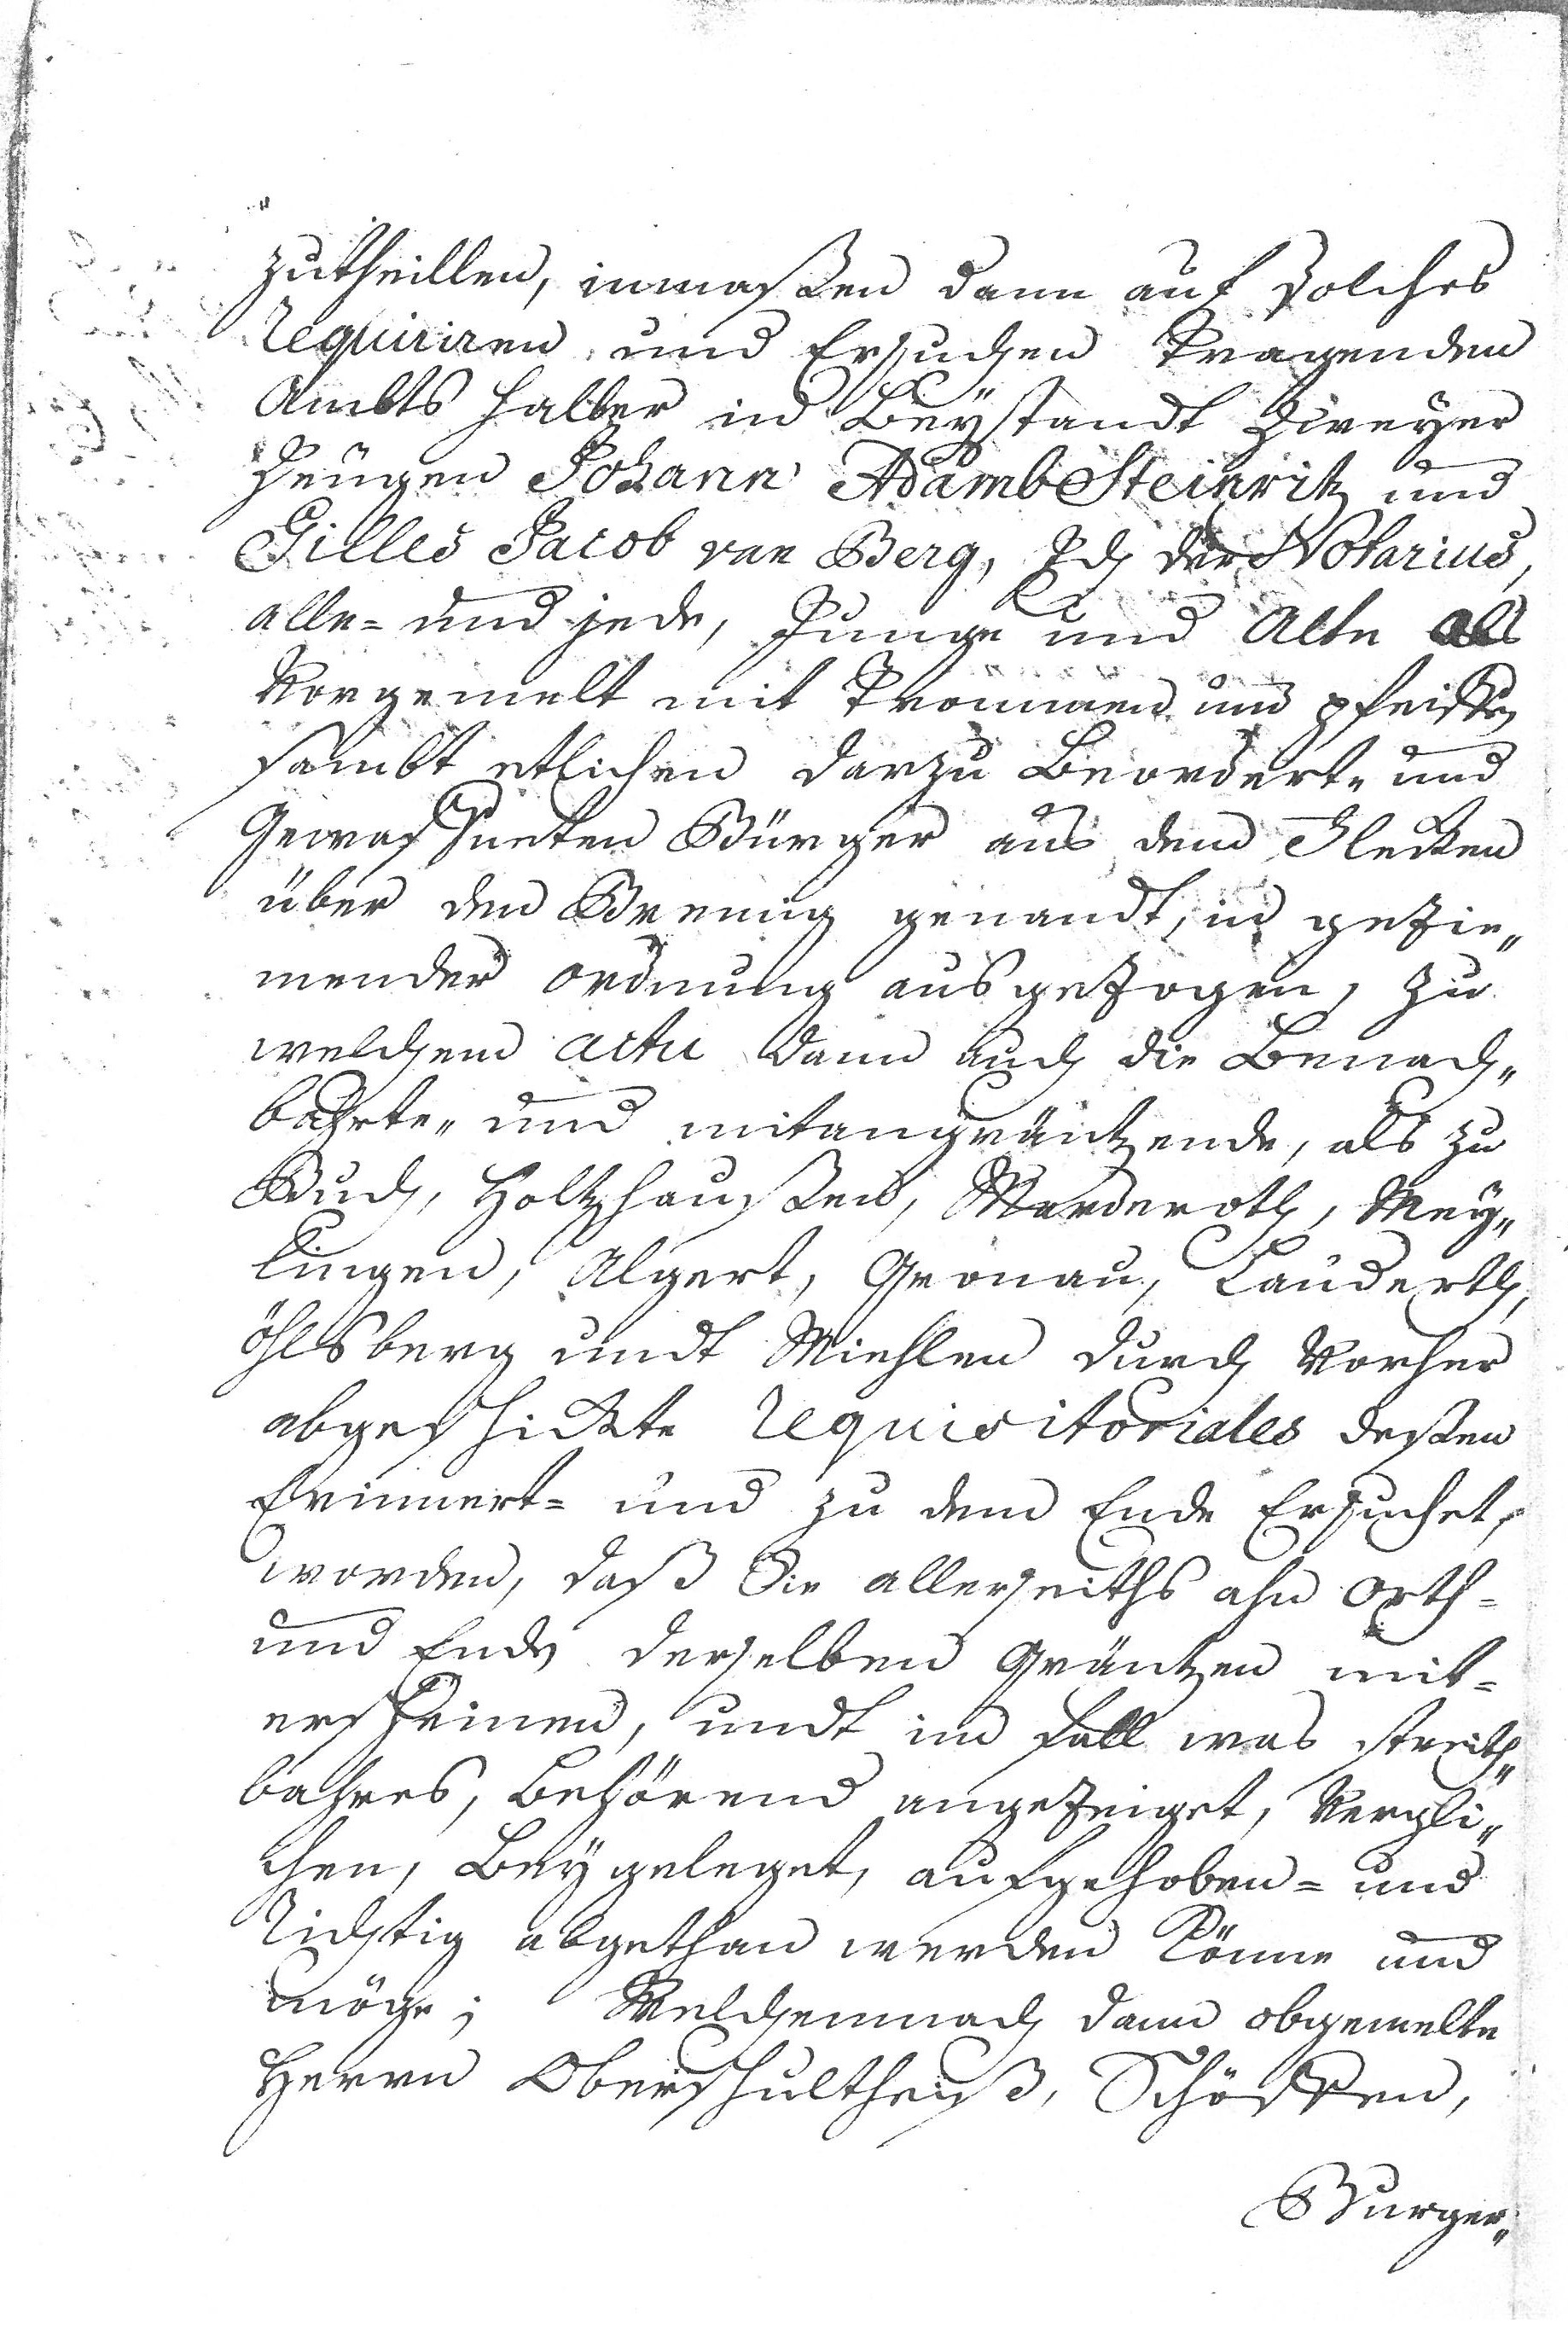 zutheillen, inmaßen dann auf solches
Requiriren und Ersuchen tragenden
Ambts halber in Beÿstandt Zweÿer
Zeügen Johann Adamb Steinritz und
Gilles Jacob van Berg, Ich der Notarius,
alle- und jede, Junge und Alte als
Vorgemelt mit Trommen und pfeiffen
sambt etlichen darzu Beordert- und
Gewaffneten Bürger aus dem Flecken
über den Brennig genandt, in gezie„
mender ordnung ausgezogen, Zu
welchem actu dann auch die Benach„
bahrte„ und mitangräntzende, als zu
Buch, Holtzhaußen, Marderoth, Meÿ„
lingen, Algert, Gronau, Lauderth,
öhlsberg undt Miehlen durch Vorher
abgeschickte Requisitoriales deßen
Erinnert= und zu dem Ende Ersuchet,
worden, daß Sie allerseiths ahn Orth=
und Ends derselben Gräntzen mit=
erscheinen, undt im fall was streith„
bahres, Behörend angezeiget, Vergli„
chen, Beÿgeleget, aufgehoben= und
Richtig abgethan werden könne und
möge; Welchemnach dann obgemelte
Herrn Oberschultheiß, Schöffen,
Burger„